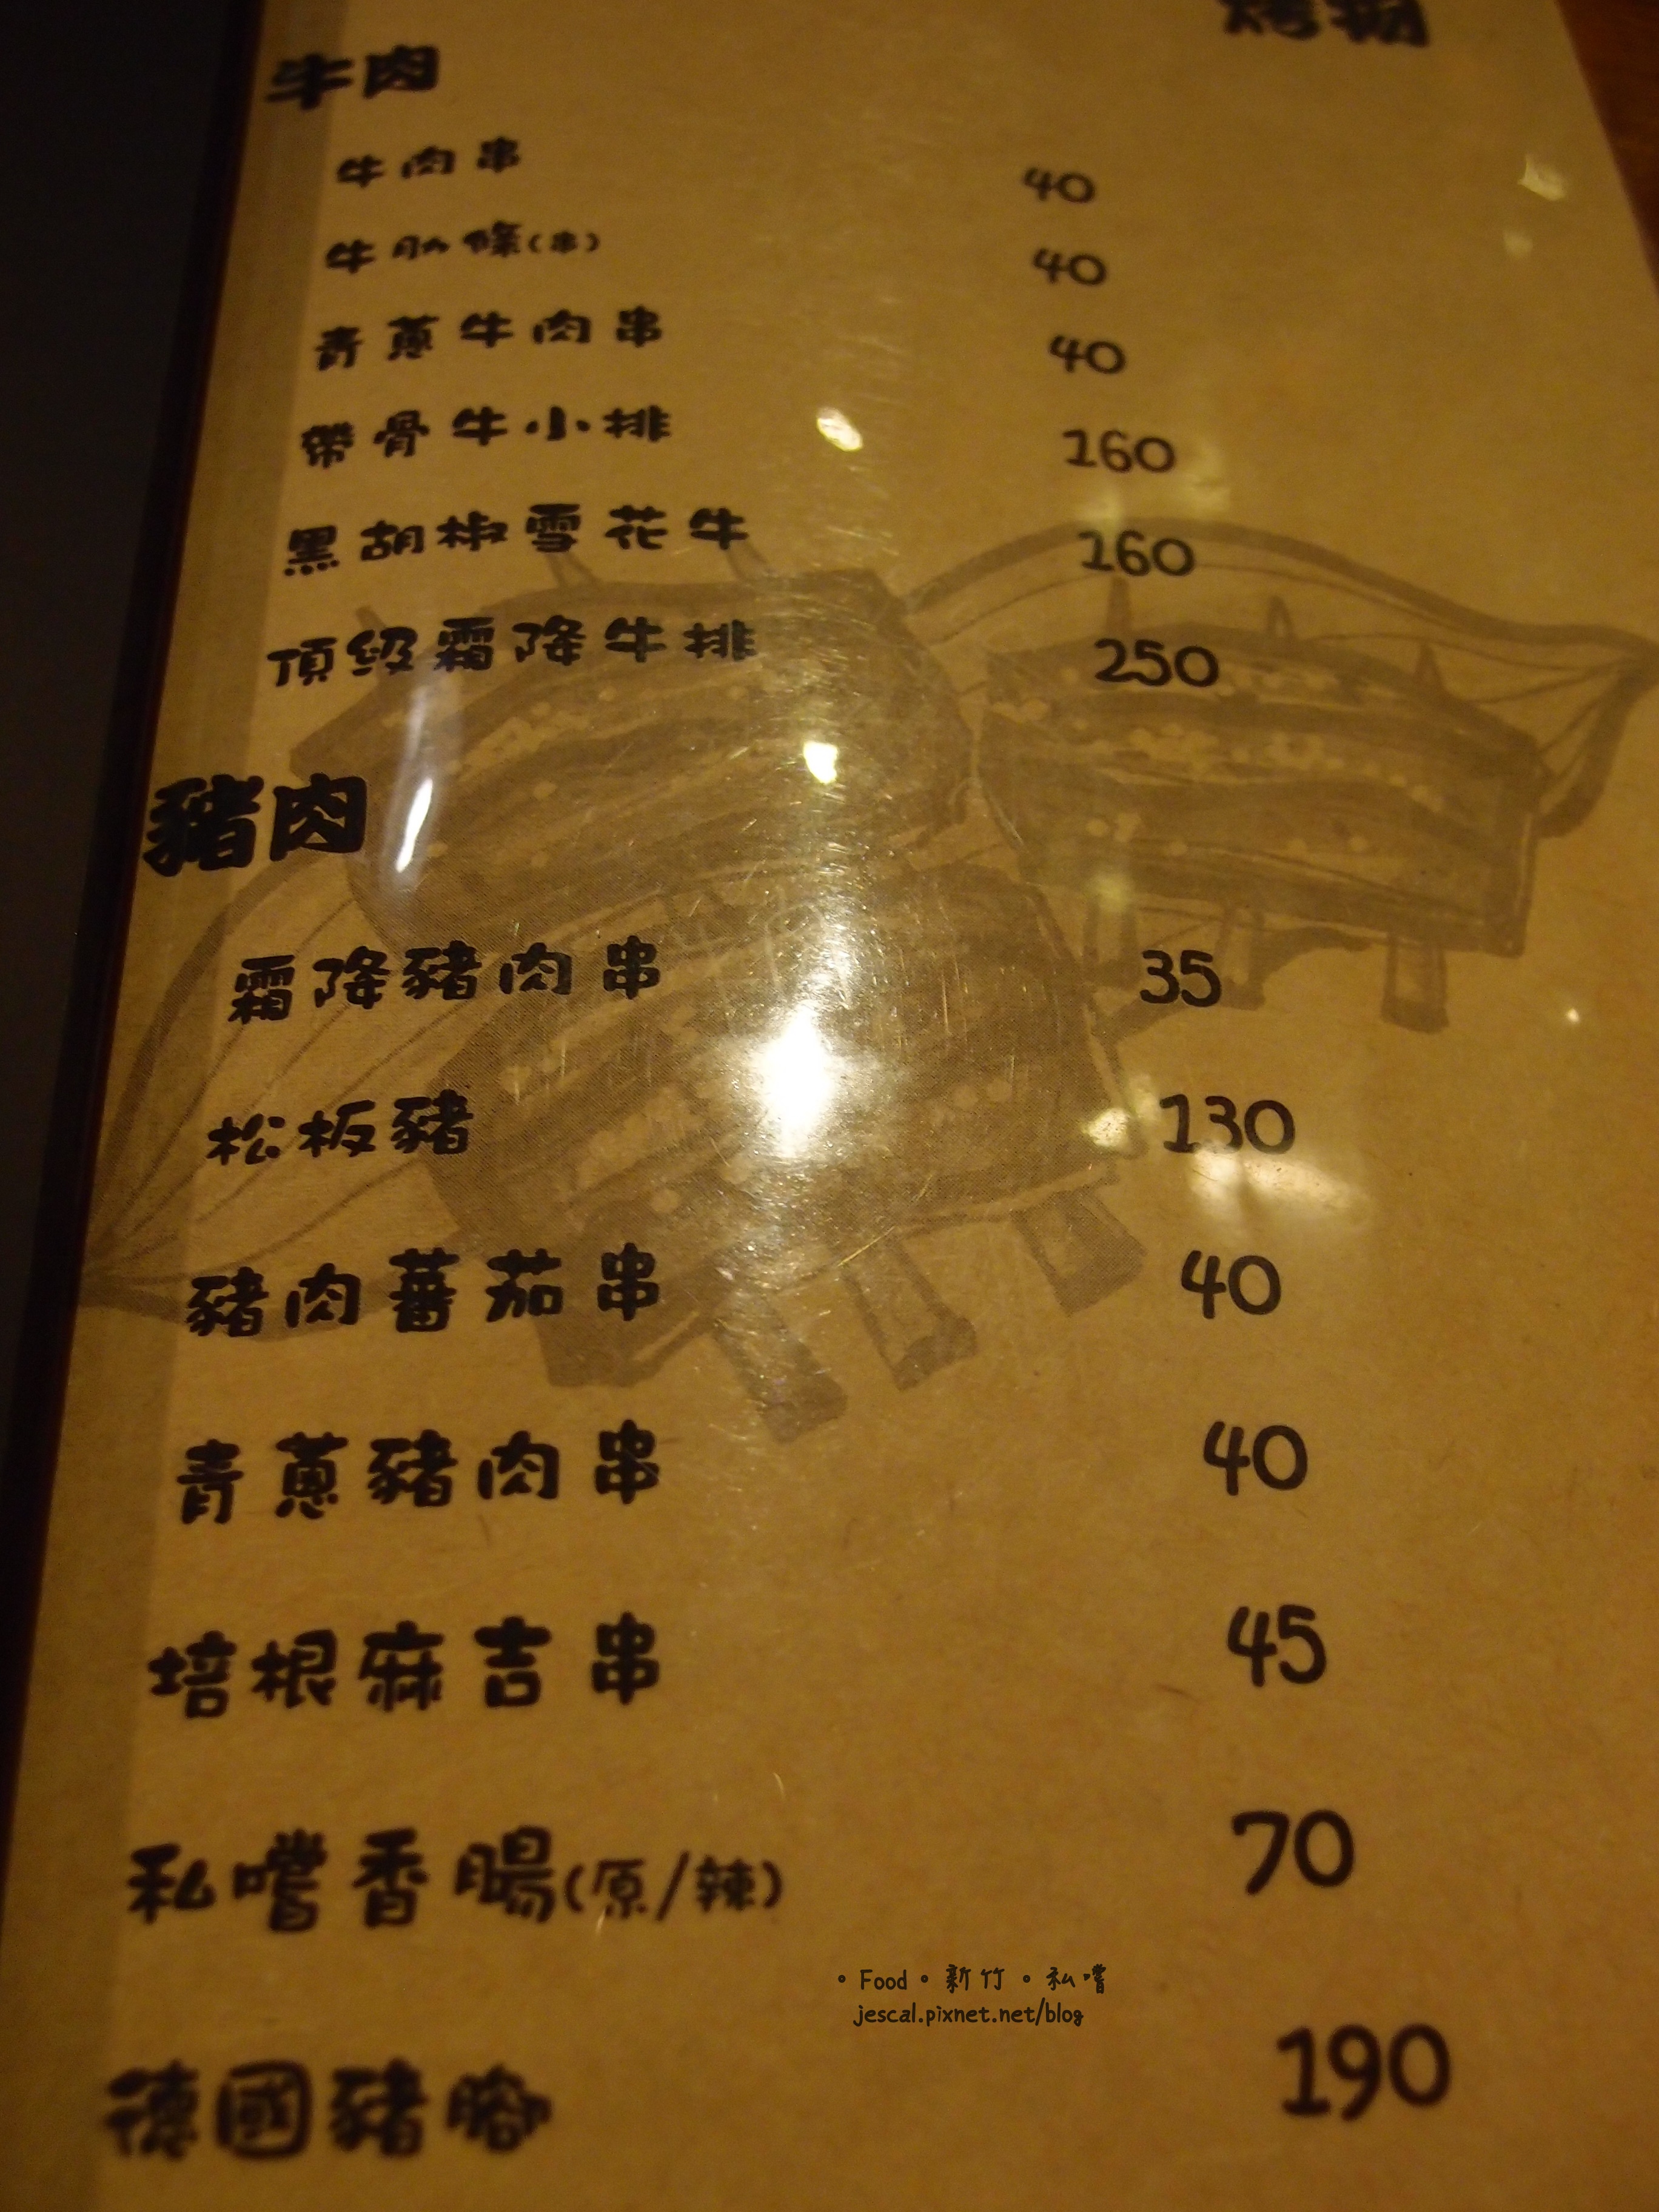 牛肉
牛肉串 40
牛肋條(串) 40
青蔥牛肉串 40
帶骨牛小排 160
黑胡椒雪花牛 160
頂級霜降牛排 250
豬肉
霜降豬肉串 35
松板豬 130
豬肉蕃茄串 40
青蔥豬肉串 40
培根麻吉串 45
私嚐香腸(原/辣) 70
。Food。新竹。私嚐
jescal.pixnet.net/blog
德國豬腳 190